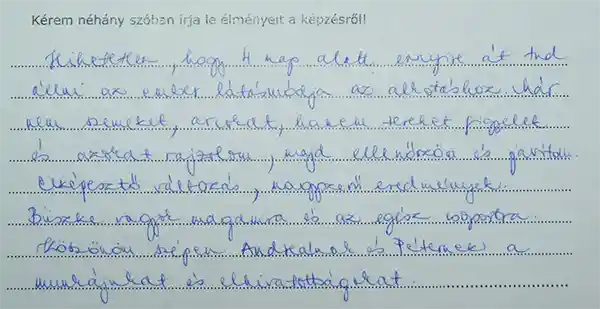 Kérem néhány szóban írja le élményeit a képzésről!
Hihetetlen, hogy 4 nap alatt ennyire át tud
állni az ember látásmódja az alkotáshoz. Már
nem szemeket, arcokat, hanem tereket figyelek
és azokat rajzolom, majd ellenőrzöm és javítom.
Elképesztő változás, nagyszerű eredmények.
Büszke vagyok magamra és az egész csoportra.
Köszönöm szépen Andreának és Péternek a
munkájukat és elhivatottságukat.